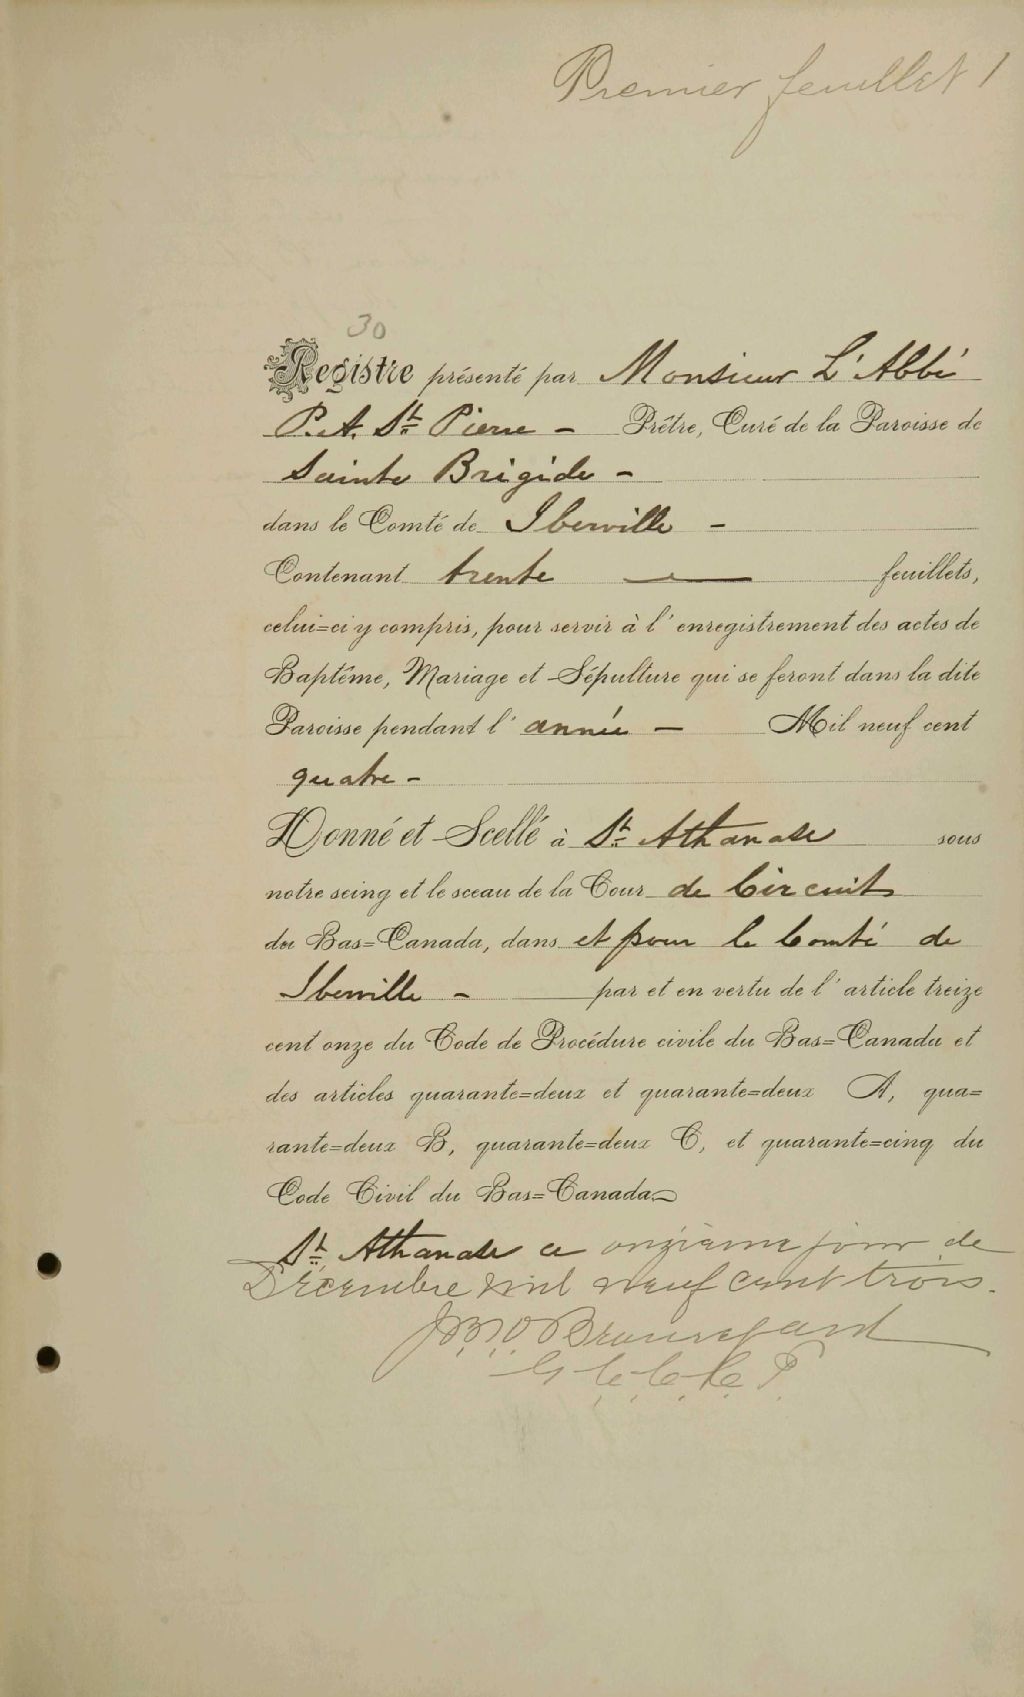 Premier feuillet 1
30
Registre présenté par Monsieur L'Abbé
P. A. St Pierre - Prêtre, Curé de la Paroisse de
Sainte Brigide -
dans le Comté de Iberville -
Contenant trente feuillets,
celui=ci y compris, pour servir à l'enregistrement des actes de
Baptême, Mariage et Sépulture qui se feront dans la dite
Paroisse pendant l'année - Mil neuf cent
quatre -
Donné et Scellé à St Athanase sous
notre seing et le sceau de la Cour de Circuit
du Bas=Canada, dans et pour le Comté de
Iberville - par et en vertu de l'article treize
cent onze du Code de Procédure civile du Bas=Canada et
des articles quarante=deux et quarante=deux A, qua=
rante=deux B, quarante=deux C, et quarante=cinq du
Code Civil du Bas=Canada
St Athanase ce onzième jour de
Décembre mil neuf cent trois.